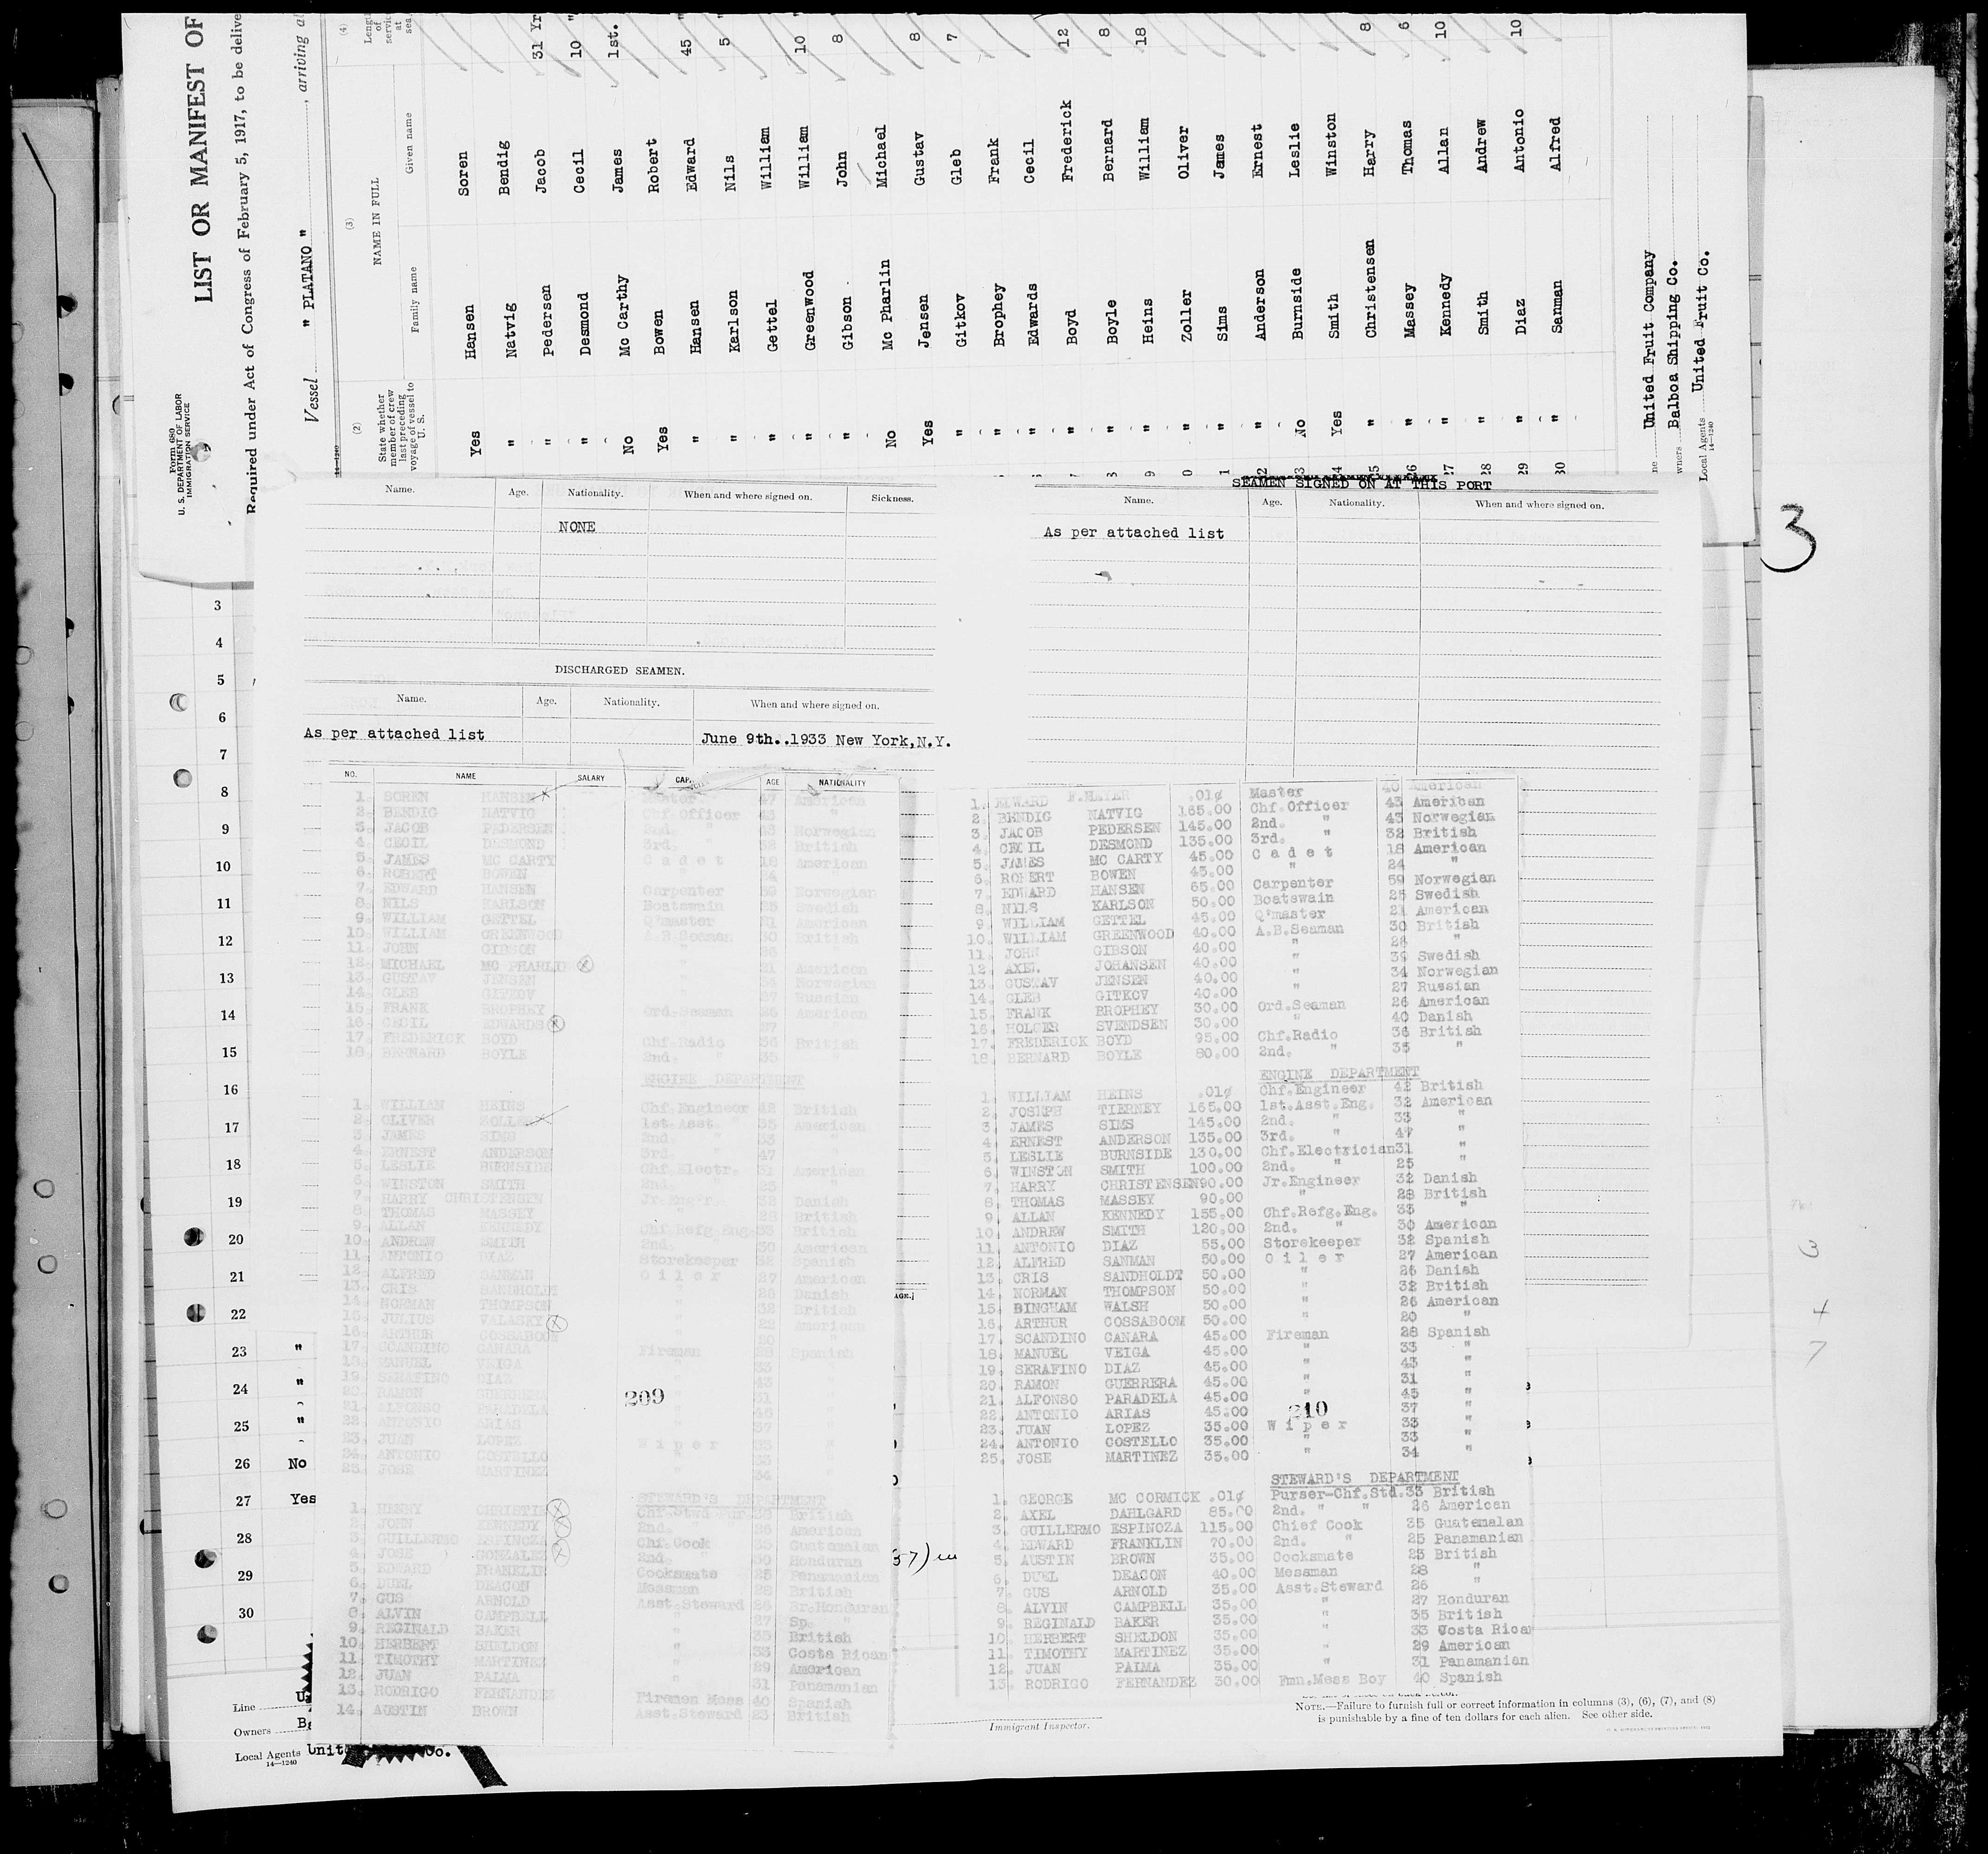 Form 680
U. S. DEPARTMENT OF LABOR
IMMIGRATION SERVICE
LIST OR MANIFEST OF
Required under Act of Congress of February 5, 1917, to be delive
Vessel " PLATANO " , arriving at
(2) (3) (4)
State whether member of crew last preceding voyage of vessel to U. S.
NAME IN FULL
Family name Given name
Length of service at sea
Yes Hansen Soren
" Natvig Bendig
" Pedersen Jacob 31 Yr
" Desmond Cecil 10 "
No Mc Carthy James 1st.
Yes Bowen Robert
" Hansen Edward 45 "
" Karlson Nils 5 "
" Gettel William
" Greenwood William 10 "
" Gibson John 8
No Mc Pharlin Michael
Yes Jensen Gustav 8
" Gitkov Gleb 7
" Brophey Frank
" Edwards Cecil
" Boyd Frederick 12
" Boyle Bernard 8
9 " Heins William 18
0 " Zoller Oliver
1 " Sims James
22 " Anderson Ernest
23 No Burnside Leslie
24 Yes Smith Winston
25 " Christensen Harry 8
26 " Massey Thomas 6
27 " Kennedy Allan 10
28 " Smith Andrew
29 " Diaz Antonio 10
30 " Sanman Alfred
United Fruit Company
wners Balboa Shipping Co.
Local Agents United Fruit Co.
14—1240
3
Name. Age. Nationality. When and where signed on. Sickness.
NONE
DISCHARGED SEAMEN.
Name. Age. Nationality. When and where signed on.
As per attached list June 9th..1933 New York,N.Y.
SEAMEN SIGNED ON AT THIS PORT
Name. Age. Nationality. When and where signed on.
As per attached list
NO. NAME SALARY AGE NATIONALITY
1. SOREN HANSEN Master 47 American
2. BENDIG NATVIG Chf.Officer 43 "
3. JACOB PEDERSEN 2nd. " 43 Norwegian
4. CECIL DESMOND 3rd. " 32 British
5. JAMES MC CARTY C a d e t 18 American
6. ROBERT BOWEN "
7. EDWARD HANSEN Carpenter 59 Norwegian
8. NILS KARLSON Boatswain 25 Swedish
9. WILLIAM GETTEL Q'master 21 American
10. WILLIAM GREENWOOD A.B.Seaman 30 British
11. JOHN GIBSON "
12. MICHAEL MC PHARLIN " 21 American
13. GUSTAV JENSEN " 34 Norwegian
14. GLEB GITKOV " 27 Russian
15. FRANK BROPHEY Ord.Seaman 26 American
16. CECIL EDWARDS " 27
17. FREDERICK BOYD Chf.Radio 36 British
18. BERNARD BOYLE 2nd. " 35 "
ENGINE DEPARTMENT
1. WILLIAM HEINS Chf.Engineer 42 British
2. OLIVER ZOLLER 1st.Asst. " 35 American
3. JAMES SIMS 2nd. " 33 "
4. ERNEST ANDERSON 3rd. " 47 "
5. LESLIE BURNSIDE Chf.Electr. 31 American
6. WINSTON SMITH 2nd. " 25 "
7. HARRY CHRISTENSEN Jr.Eng'r. 32 Danish
8. THOMAS MASSEY " 28 British
9. ALLAN KENNEDY Chf.Refg.Eng. 33 British
10. ANDREW SMITH 2nd. " 30 American
11. ANTONIO DIAZ Storekeeper 32 Spanish
12. ALFRED SANMAN O i l e r 27 American
13. CRIS SANDHOLDT " 26 Danish
14. NORMAN THOMPSON " 32 British
15. JULIUS VALASKY " 22 American
16. ARTHUR COSSABOOM " 20 "
17. SCANDINO CANARA Fireman 28 Spanish
18. MANUEL VEIGA " 33 "
19. SERAFINO DIAZ " 43 "
20. RAMON GUERRERA " 31 "
21. ALFONSO PARADELA " 45 "
22. ANTONIO ARIAS " 37 "
23. JUAN LOPEZ W i p e r 33 "
24. ANTONIO COSTELLO " 33 "
25. JOSE MARTINEZ " 34 "
209
STEWARD'S DEPARTMENT
1. HENRY CHRISTIE British
2. JOHN KENNEDY 2nd. " 26 American
3. GUILLERMO ESPINOZA Chf.Cook 35 Guatemalan
4. JOSE GONZALEZ 2nd. " 30 Honduran
5. EDWARD FRANKLIN Cooksmate 25 Panamanian
6. DUEL DEACON Messman 28 British
7. GUS ARNOLD Asst.Steward 26 Br.Honduran
8. ALVIN CAMPBELL " 27 Sp. "
9. REGINALD BAKER " 35 British
10. HERBERT SHELDON " 33 Costa Rican
11. TIMOTHY MARTINEZ " 29 American
12. JUAN PALMA " 31 Panamanian
13. RODRIGO FERNANDEZ Firemen Mess 40 Spanish
14. AUSTIN BROWN Asst.Steward 23 British
1. EDWARD F.MAYER .01¢ Master 40 American
2. BENDIG NATVIG 165.00 Chf.Officer 43 American
3. JACOB PEDERSEN 145.00 2nd. " 43 Norwegian
4. CECIL DESMOND 135.00 3rd. " 32 British
5. JAMES MC CARTY 45.00 C a d e t 18 American
6. ROBERT BOWEN 45.00 " 24 "
7. EDWARD HANSEN 65.00 Carpenter 59 Norwegian
8. NILS KARLSON 50.00 Boatswain 25 Swedish
9. WILLIAM GETTEL 45.00 Q'master 21 American
10. WILLIAM GREENWOOD 40.00 A.B.Seaman 30 British
11. JOHN GIBSON 40.00 " 26 "
12. AXEL JOHANSEN 40.00 " 39 Swedish
13. GUSTAV JENSEN 40.00 " 34 Norwegian
14. GLEB GITKOV 40.00 " 27 Russian
15. FRANK BROPHEY 30.00 Ord.Seaman 26 American
16. HOLGER SVENDSEN 30.00 " 40 Danish
17. FREDERICK BOYD 95.00 Chf.Radio 36 British
18. BERNARD BOYLE 80.00 2nd. " 35 "
ENGINE DEPARTMENT
1. WILLIAM HEINS .01¢ Chf.Engineer 42 British
2. JOSEPH TIERNEY 165.00 1st.Asst.Eng. 32 American
3. JAMES SIMS 145.00 2nd. " 33 "
4. ERNEST ANDERSON 135.00 3rd. " 47 "
5. LESLIE BURNSIDE 130.00 Chf.Electrician31 "
6. WINSTON SMITH 100.00 2nd. " 25 "
7. HARRY CHRISTENSEN90.00 Jr.Engineer 32 Danish
8. THOMAS MASSEY 90.00 " 28 British
9. ALLAN KENNEDY 155.00 Chf.Refg.Eng. 33 "
10. ANDREW SMITH 120.00 2nd. " 30 American
11. ANTONIO DIAZ 55.00 Storekeeper 32 Spanish
12. ALFRED SANMAN 50.00 O i l e r 27 American
13. CRIS SANDHOLDT 50.00 " 26 Danish
14. NORMAN THOMPSON 50.00 " 32 British
15. BINGHAM WALSH 50.00 " 26 American
16. ARTHUR COSSABOOM 50.00 " 20 "
17. SCANDINO CANARA 45.00 Fireman 28 Spanish
18. MANUEL VEIGA 45.00 " 33 "
19. SERAFINO DIAZ 45.00 " 43 "
20. RAMON GUERRERA 45.00 " 31 "
21. ALFONSO PARADELA 45.00 " 45 "
22. ANTONIO ARIAS 45.00 " 37 "
23. JUAN LOPEZ 35.00 W i p e r 33 "
24. ANTONIO COSTELLO 35.00 " 33 "
25. JOSE MARTINEZ 35.00 " 34 "
210
STEWARD'S DEPARTMENT
1. GEORGE MC CORMICK .01¢ Purser-Chf.Std.33 British
2. AXEL DAHLGARD 85.00 2nd. " " 26 American
3. GUILLERMO ESPINOZA 115.00 Chief Cook 35 Guatemalan
4. EDWARD FRANKLIN 70.00 2nd. " 25 Panamanian
5. AUSTIN BROWN 35.00 Cooksmate 23 British
6. DUEL DEACON 40.00 Messman 28 "
7. GUS ARNOLD 35.00 Asst.Steward 26
8. ALVIN CAMPBELL 35.00 " 27 Honduran
9. REGINALD BAKER 35.00 " 35 British
10. HERBERT SHELDON 35.00 " 33 Costa Rican
11. TIMOTHY MARTINEZ 35.00 " 29 American
12. JUAN PALMA 35.00 " 31 Panamanian
13. RODRIGO FERNANDEZ 30.00 Fmn.Mess Boy 40 Spanish
3
4
5
6
7
8
9
10
11
12
13
14
15
16
17
18
19
20
21
22
23 "
24 "
25 "
26 No
27 Yes
28
29
30
Line
Owners
Local Agents Unit Co.
14—1240
Immigrant Inspector.
NOTE.—Failure to furnish full or correct information in columns (3), (6), (7), and (8)
is punishable by a fine of ten dollars for each alien. See other side.
3
4
7